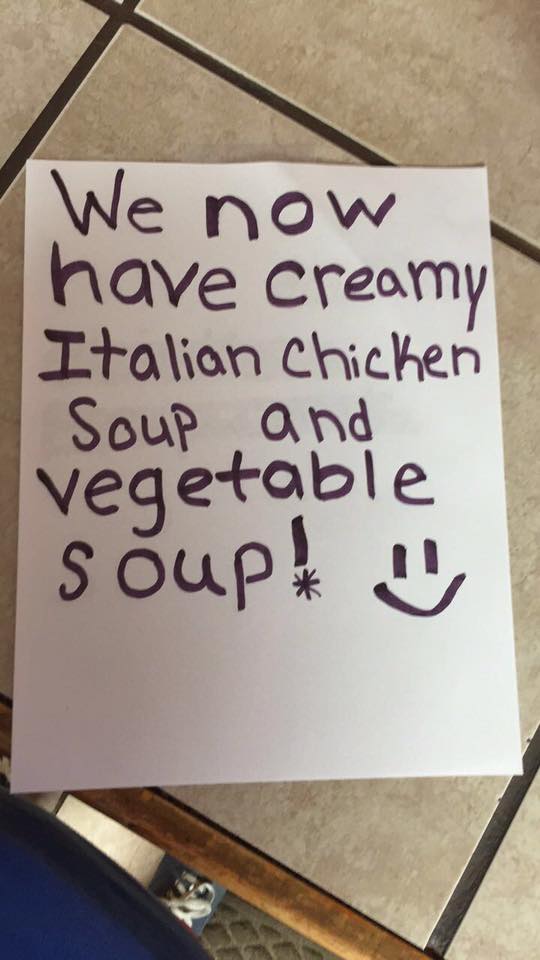 We now
have creamy
Italian chicken
Soup and
vegetable
soup!